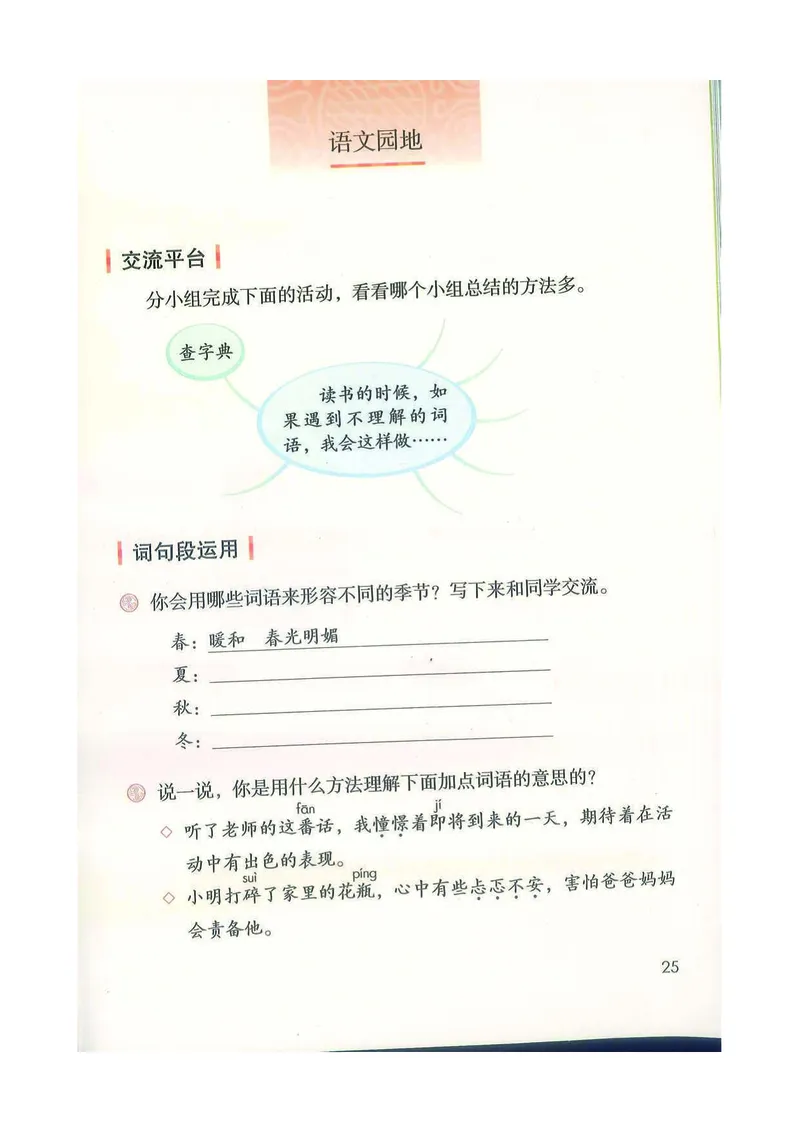 语文园地
交流平台
分小组完成下面的活动，看看哪个小组总结的方法多。
查字典
读书的时候，如
果遇到不理解的词
语，我会这样做……
词句段运用
你会用哪些词语来形容不同的季节？写下来和同学交流。
春：暖和 春光明媚
夏：
秋：
冬：
说一说，你是用什么方法理解下面加点词语的意思的？
fān jí
◇ 听了老师的这番话，我憧憬着即将到来的一天，期待着在活
动中有出色的表现。
suì píng
◇ 小明打碎了家里的花瓶，心中有些忐忑不安，害怕爸爸妈妈
会责备他。
25